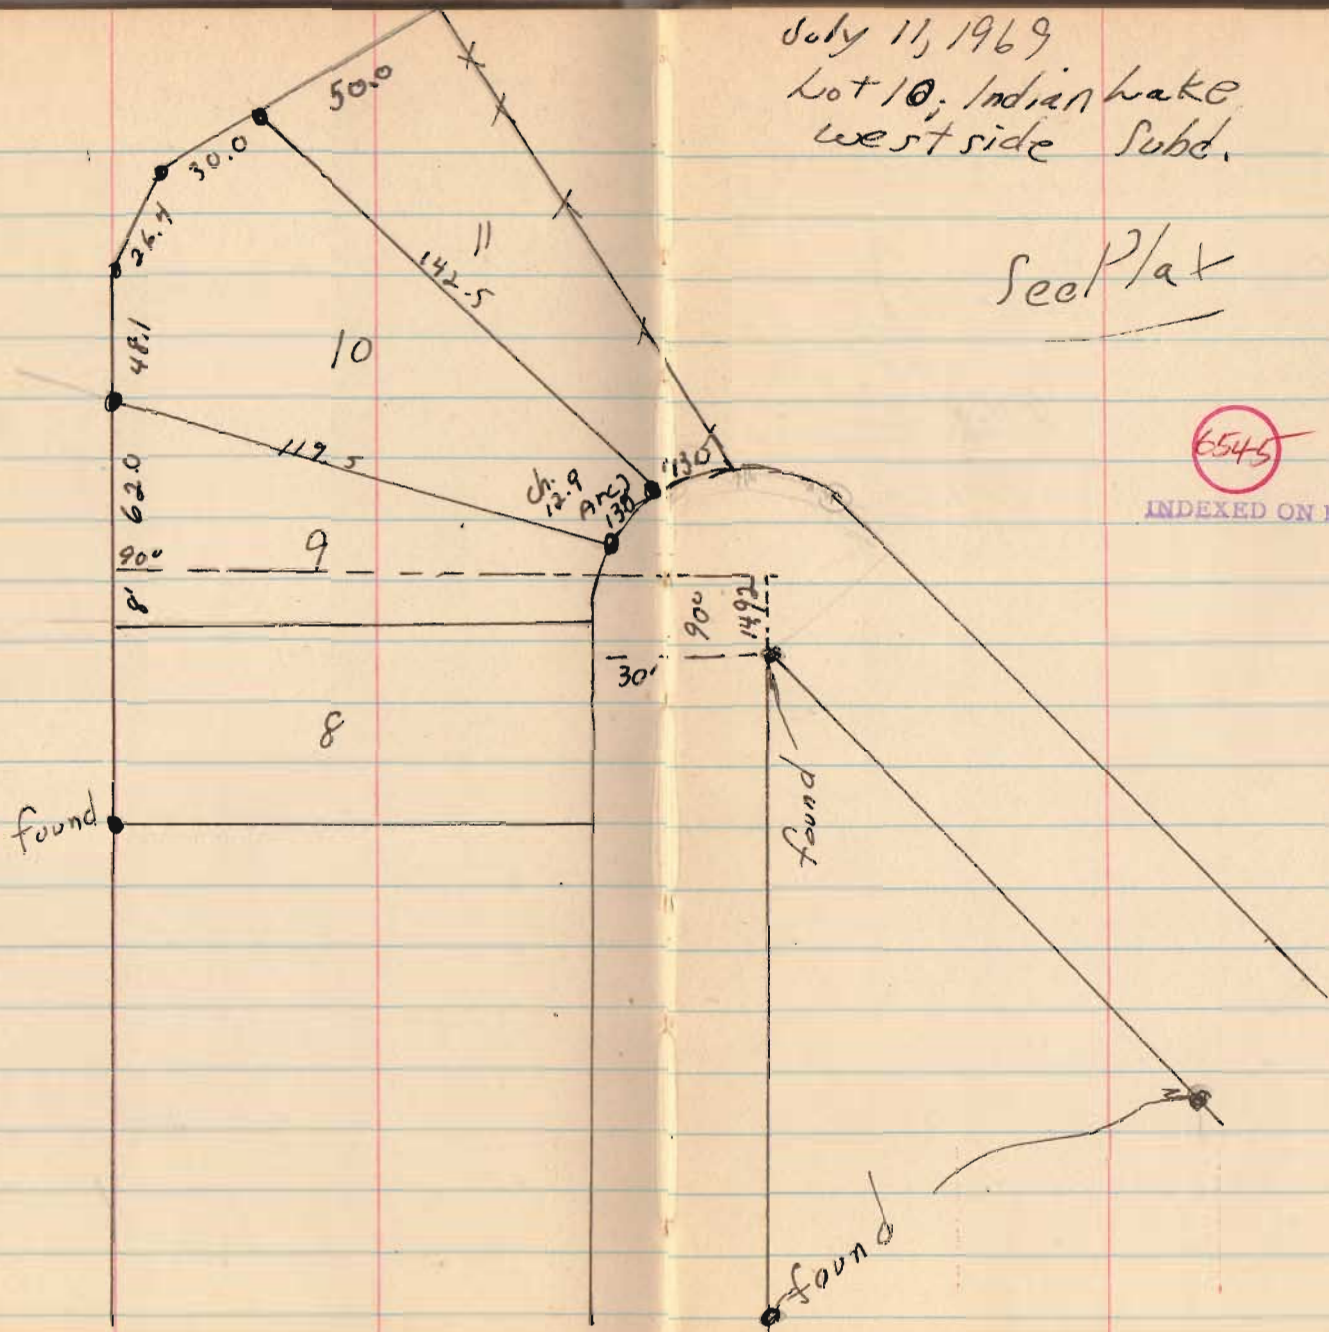 July 11, 1969
Lot 10, Indian Lake
west side Subd.
See Plat
6545
INDEXED ON
50.0
30.0
26.4
48.1
11
142.5
10
119.5
62.0
ch.
12.9
Arc
130
130
9
90°
8'
90°
1492
30'
8
found
found
found